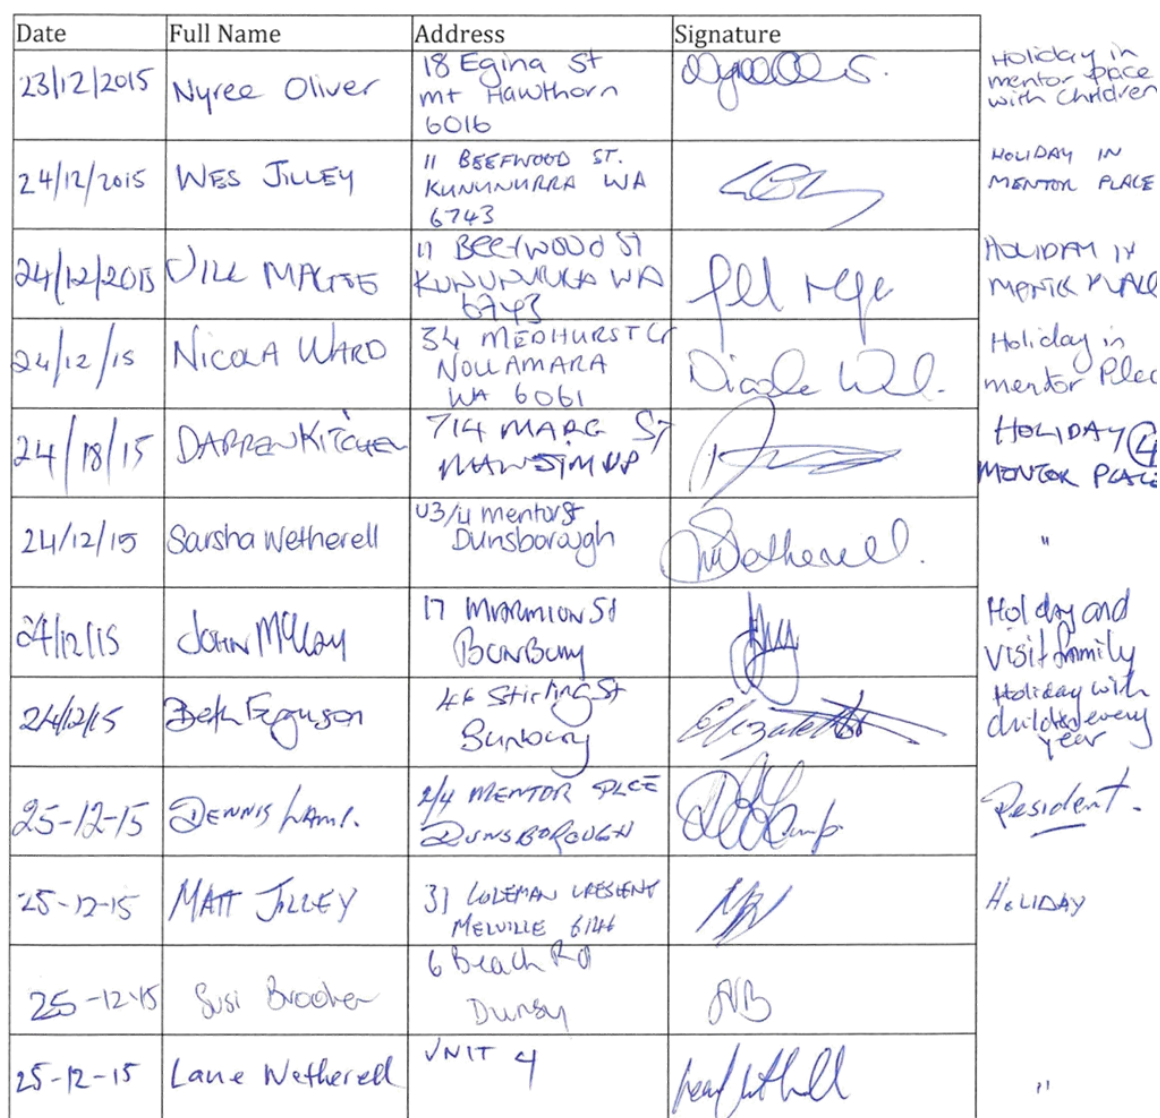 Date Full Name Address Signature
23/12/2015 Nyree Oliver 18 Egina St
mt Hawthorn
6016
Holiday in
mentor pace
with children
24/12/2015 WES JILLEY 11 BEEFWOOD ST.
KUNUNURRA WA
6743
HOLIDAY IN
MENTOR PLACE
24/12/2015 11 BEEFWOOD ST
KUNUNURRA WA
6743
HOLIDAY IN
PLACE
24/12/15 NICOLA WARD 34 MEDHURST Cr
NOLLAMARA
WA 6061
Holiday in
mentor Place
24/18/15 DARREN KITCHEN 714 MARG ST
HOLIDAY @
MENTOR PLACE
24/12/15 Sarsha Wetherell U3/4 mentor St
Dunsborough
"
24/12/15 JOHN 17 MARMION St
BUNBURY
Holiday and
visit family
24/12/15 Beth Ferguson 46 Stirling St
Bunbury
Holiday with
children every
year
25-12-15 DENNIS 2/4 MENTOR PLCE
DUNSBOROUGH
Resident.
25-12-15 MATT JILLEY 31 COLEMAN CRESENT
MELVILLE
HOLIDAY
25-12-15 Susi 6 Beach Rd
Dunsy
25-12-15 Wetherell UNIT 4
"